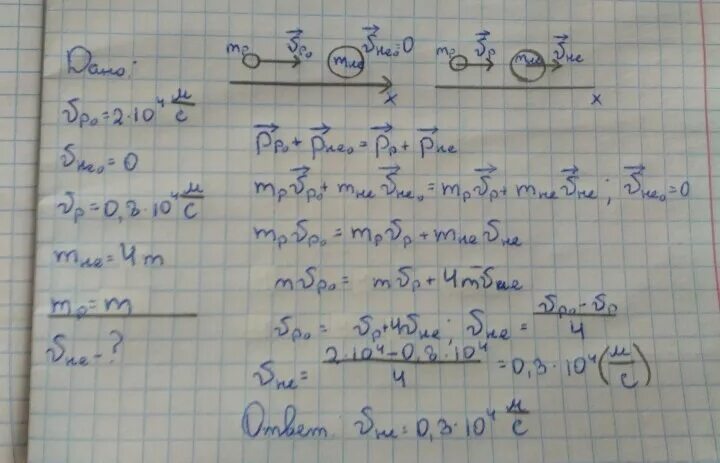 Дано:
υp₀=2·10⁴ м/с
υHe₀=0
υp=0,8·10⁴ м/с
mHe=4m
mp=m
υHe-?
mp υ⃗p₀ mHe υ⃗He₀=0 mp υ⃗p mHe υ⃗He
x x
P⃗p₀+P⃗He₀=P⃗p+P⃗He
mpυ⃗p₀+mHeυ⃗He₀=mpυ⃗p+mHeυ⃗He; υ⃗He₀=0
mpυp₀=mpυp+mHeυHe
mυp₀= mυp+4mυHe
υp₀= υp+4υHe; υHe= (υp₀-υp)/4
υHe= (2·10⁴-0,8·10⁴)/4 =0,3·10⁴(м/с)
Ответ: υHe=0,3·10⁴ м/с